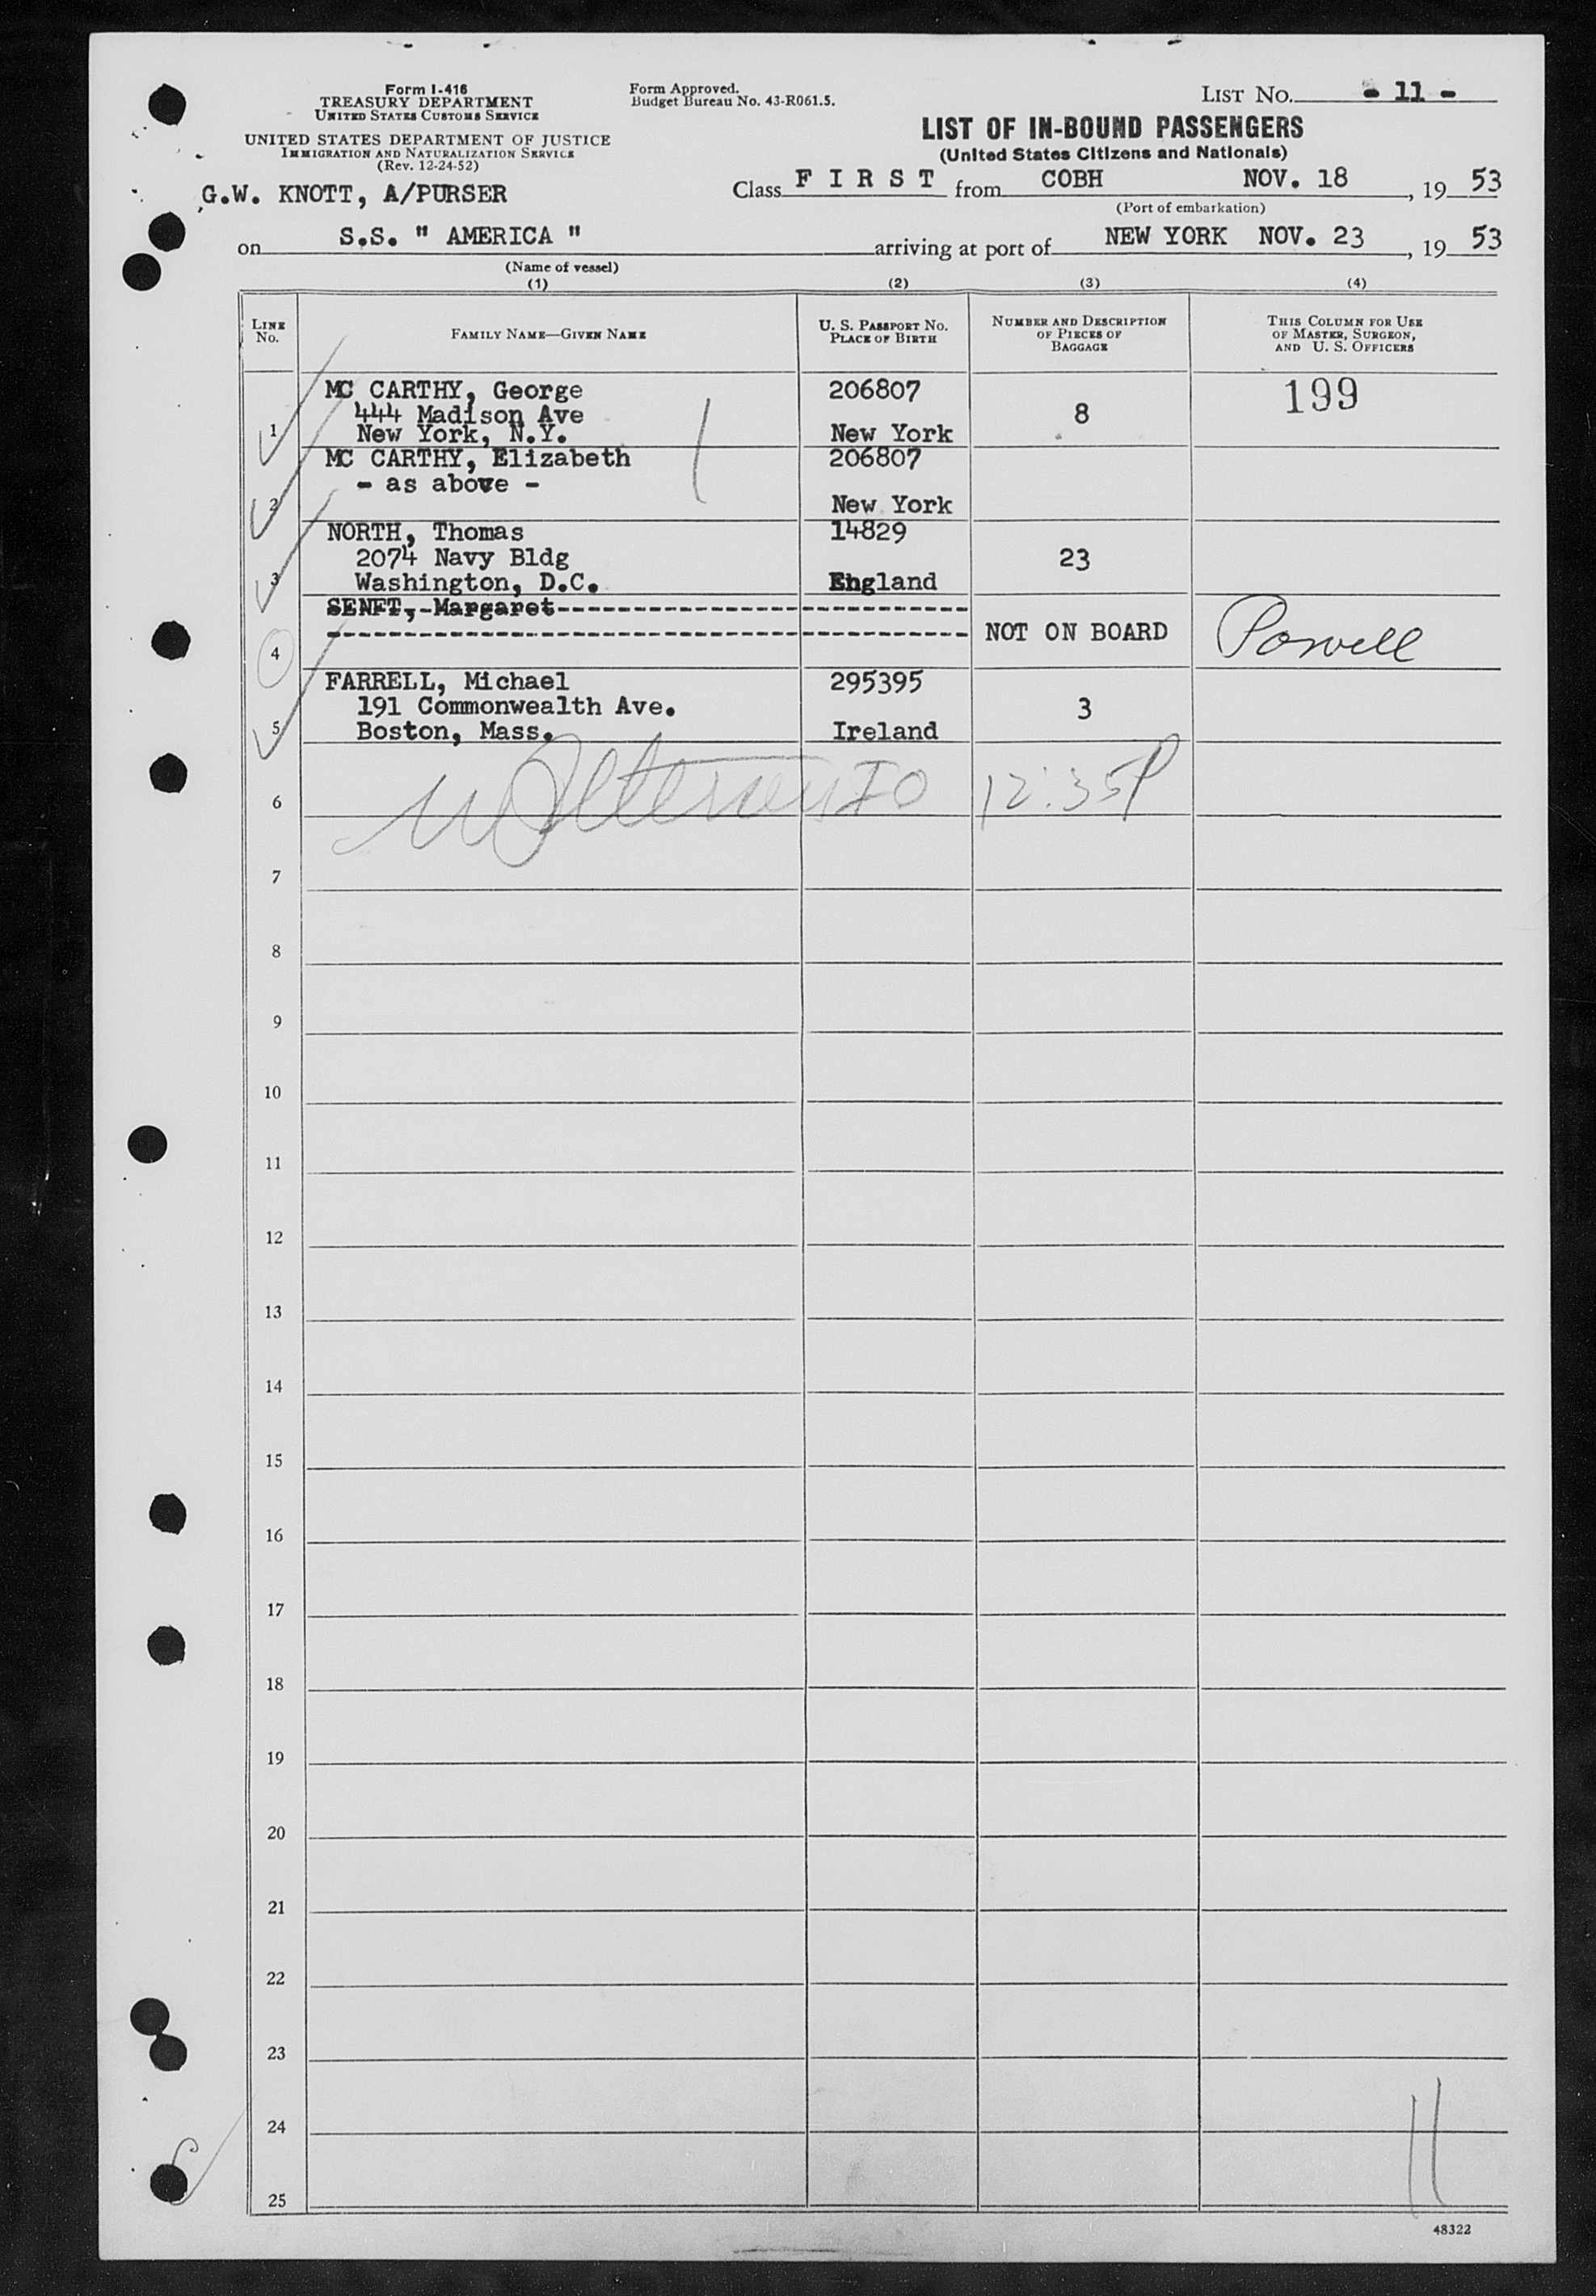 Form I-416
TREASURY DEPARTMENT
UNITED STATES CUSTOMS SERVICE
UNITED STATES DEPARTMENT OF JUSTICE
IMMIGRATION AND NATURALIZATION SERVICE
(Rev. 12-24-52)
Form Approved.
Budget Bureau No. 43-R061.5.
LIST NO. - 11 -
LIST OF IN-BOUND PASSENGERS
(United States Citizens and Nationals)
G.W. KNOTT, A/PURSER
Class F I R S T from COBH NOV. 18, 19 53
(Port of embarkation)
on S.S. " AMERICA " arriving at port of NEW YORK NOV. 23, 19 53
(Name of vessel)
(1) (2) (3) (4)
LINE No.
FAMILY NAME—GIVEN NAME
U. S. PASSPORT NO.
PLACE OF BIRTH
NUMBER AND DESCRIPTION
OF PIECES OF
BAGGAGE
THIS COLUMN FOR USE
OF MASTER, SURGEON,
AND U. S. OFFICERS
MC CARTHY, George 206807 199
444 Madison Ave 8
1 New York, N.Y. New York
MC CARTHY, Elizabeth 206807
- as above -
2 New York
NORTH, Thomas 14829
2074 Navy Bldg 23
3 Washington, D.C. England
SENFT, Margaret
NOT ON BOARD Powell
4
FARRELL, Michael 295395
191 Commonwealth Ave. 3
5 Boston, Mass. Ireland
6 IO 12:35P
7
8
9
10
11
12
13
14
15
16
17
18
19
20
21
22
23
24
25
11
48322